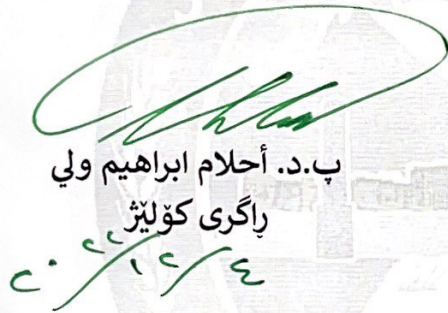 پ.د. أحلام ابراهيم ولي
ڕاگری کۆلێژ
٢٠٢٢/١٢/٤